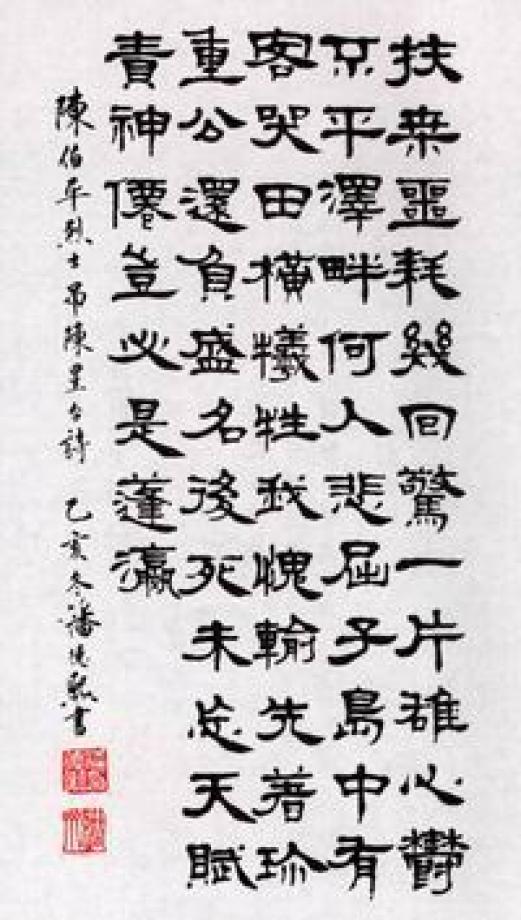 扶桒噩耗幾回驚一片雄心鬱
不平澤畔何人悲屈子島中有
客哭田橫犧牲我愧輸先著珍
重公還負盛名後死未忘天賦
責神僊豈必是蓬瀛
陳伯平烈士弔陳星台詩 乙亥冬潘德熙書